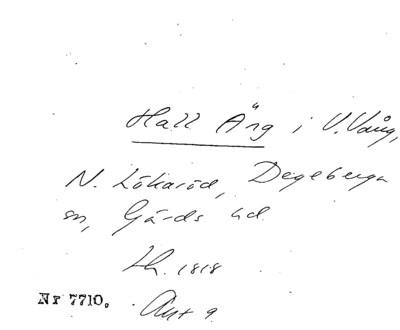 Hall Äng i V. Vång,
N. Lökaröd, Degeberga
sn, Gärds hd
Lh. 1818
Nr 7710. Akt 9